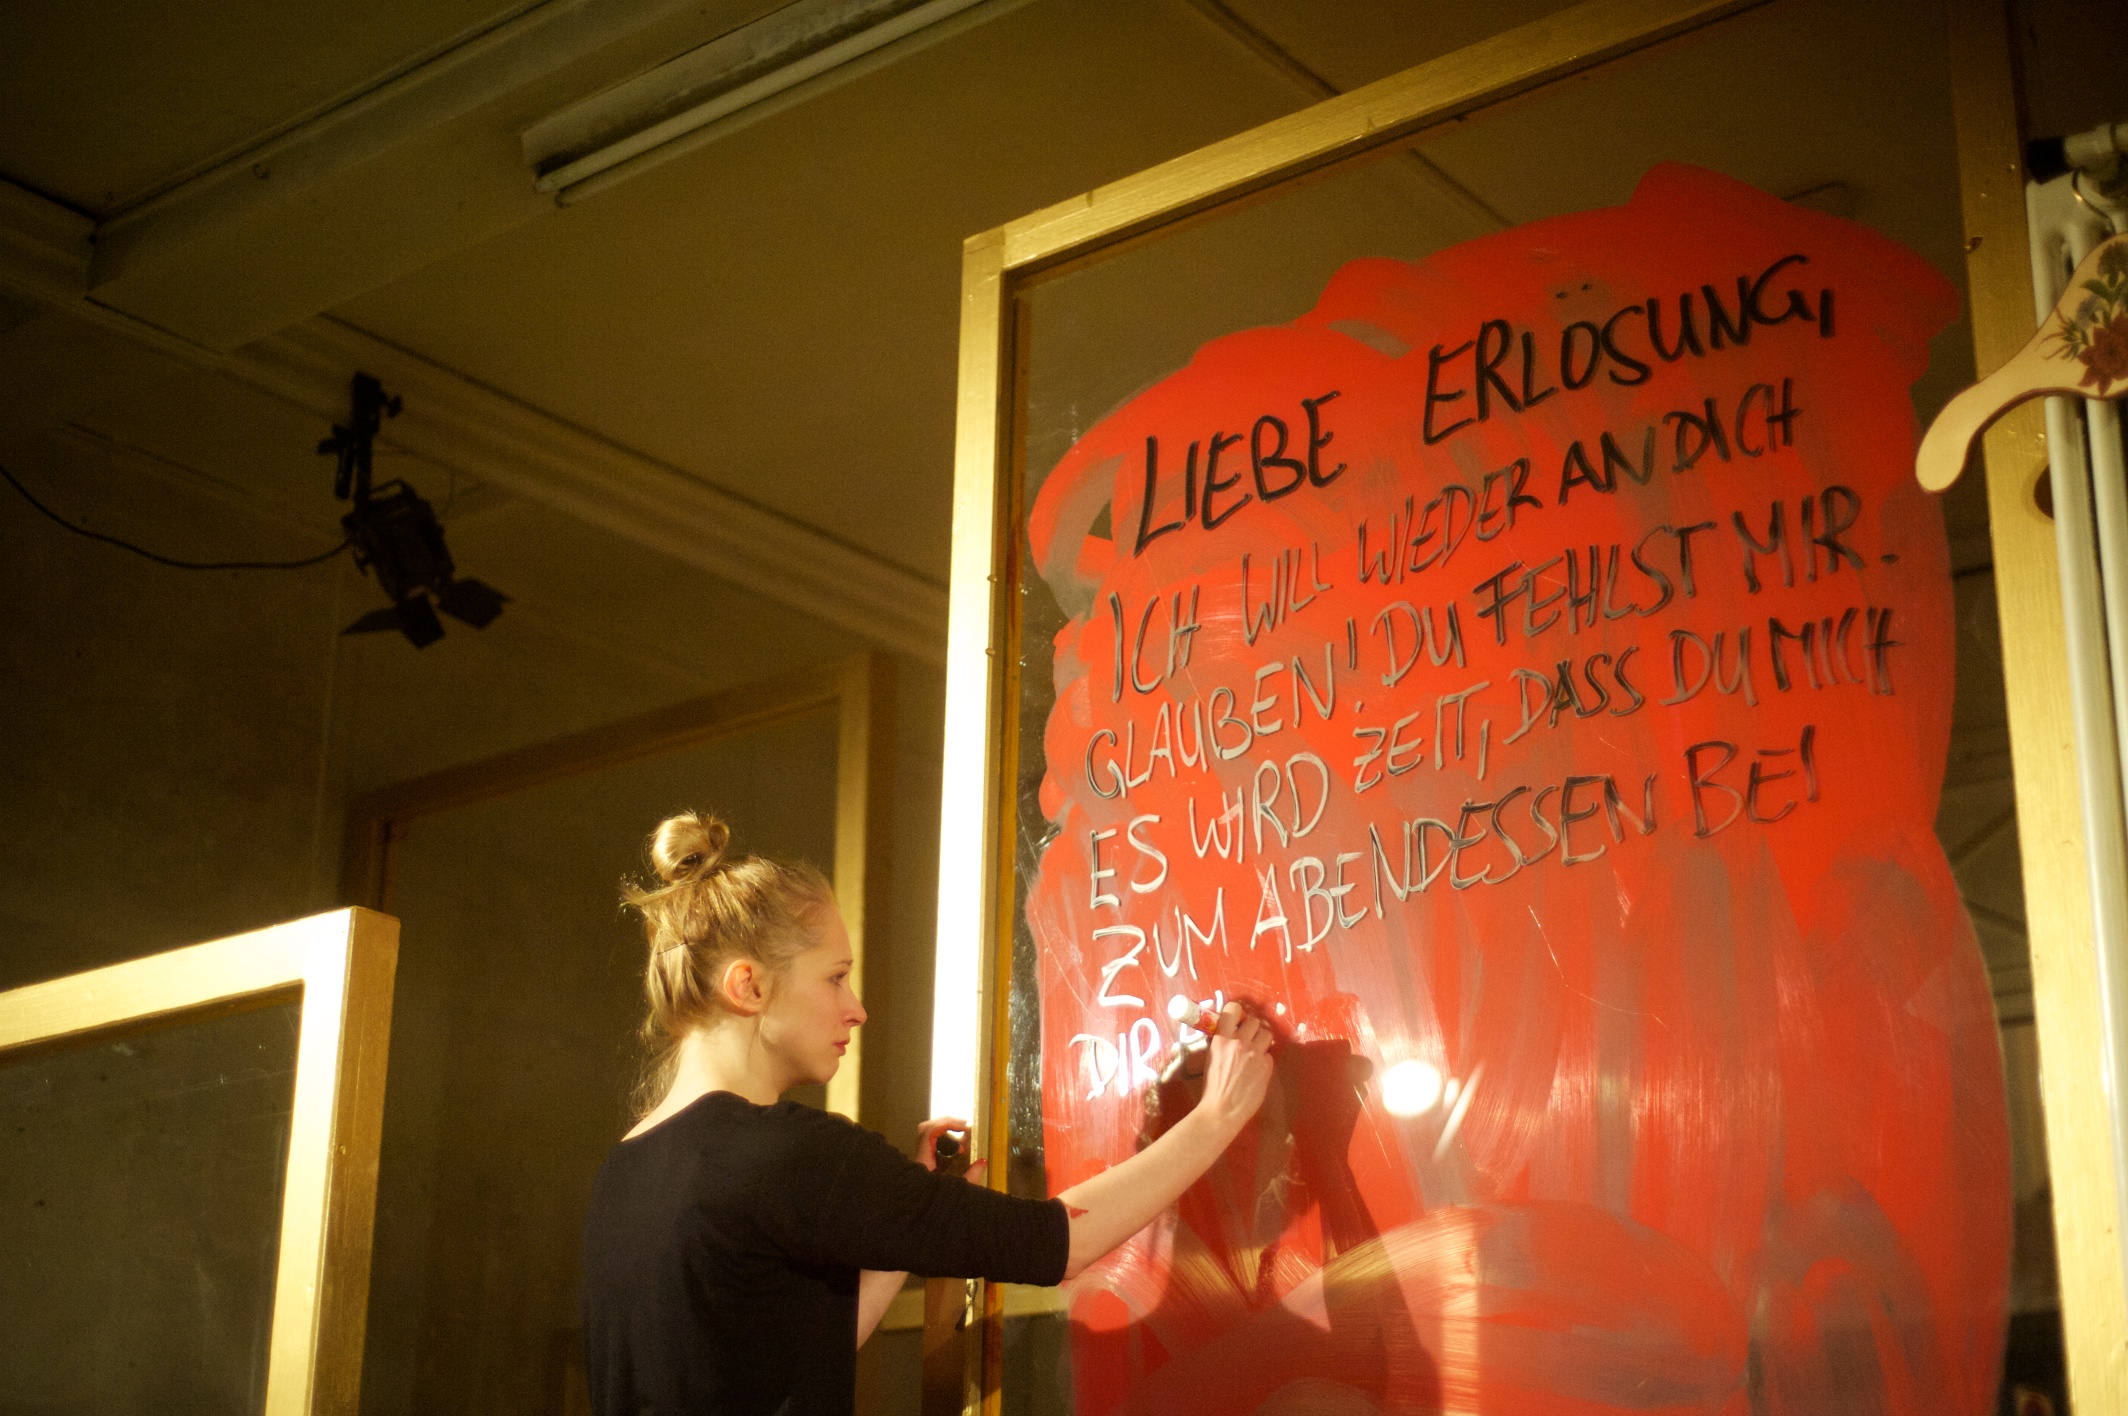 LIEBE ERLÖSUNG,
ICH WILL WIEDER AN DICH
GLAUBEN! DU FEHLST MIR.
ES WIRD ZEIT, DASS DU MICH
ZUM ABENDESSEN BEI
DIR